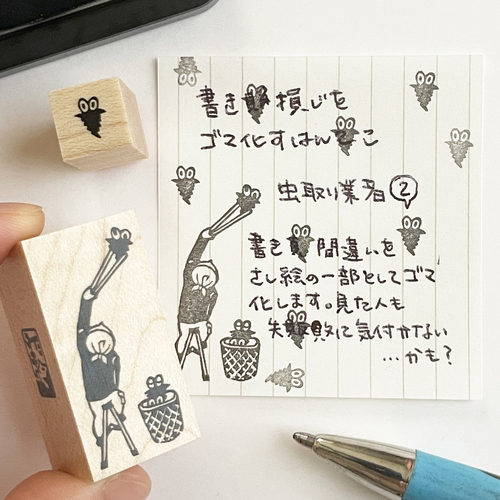 書き損じを
ゴマ化すはんこ
虫取り業者②
書き間違いを
さし絵の一部としてゴマ
化します。見た人も
失敗に気付かない
…かも?